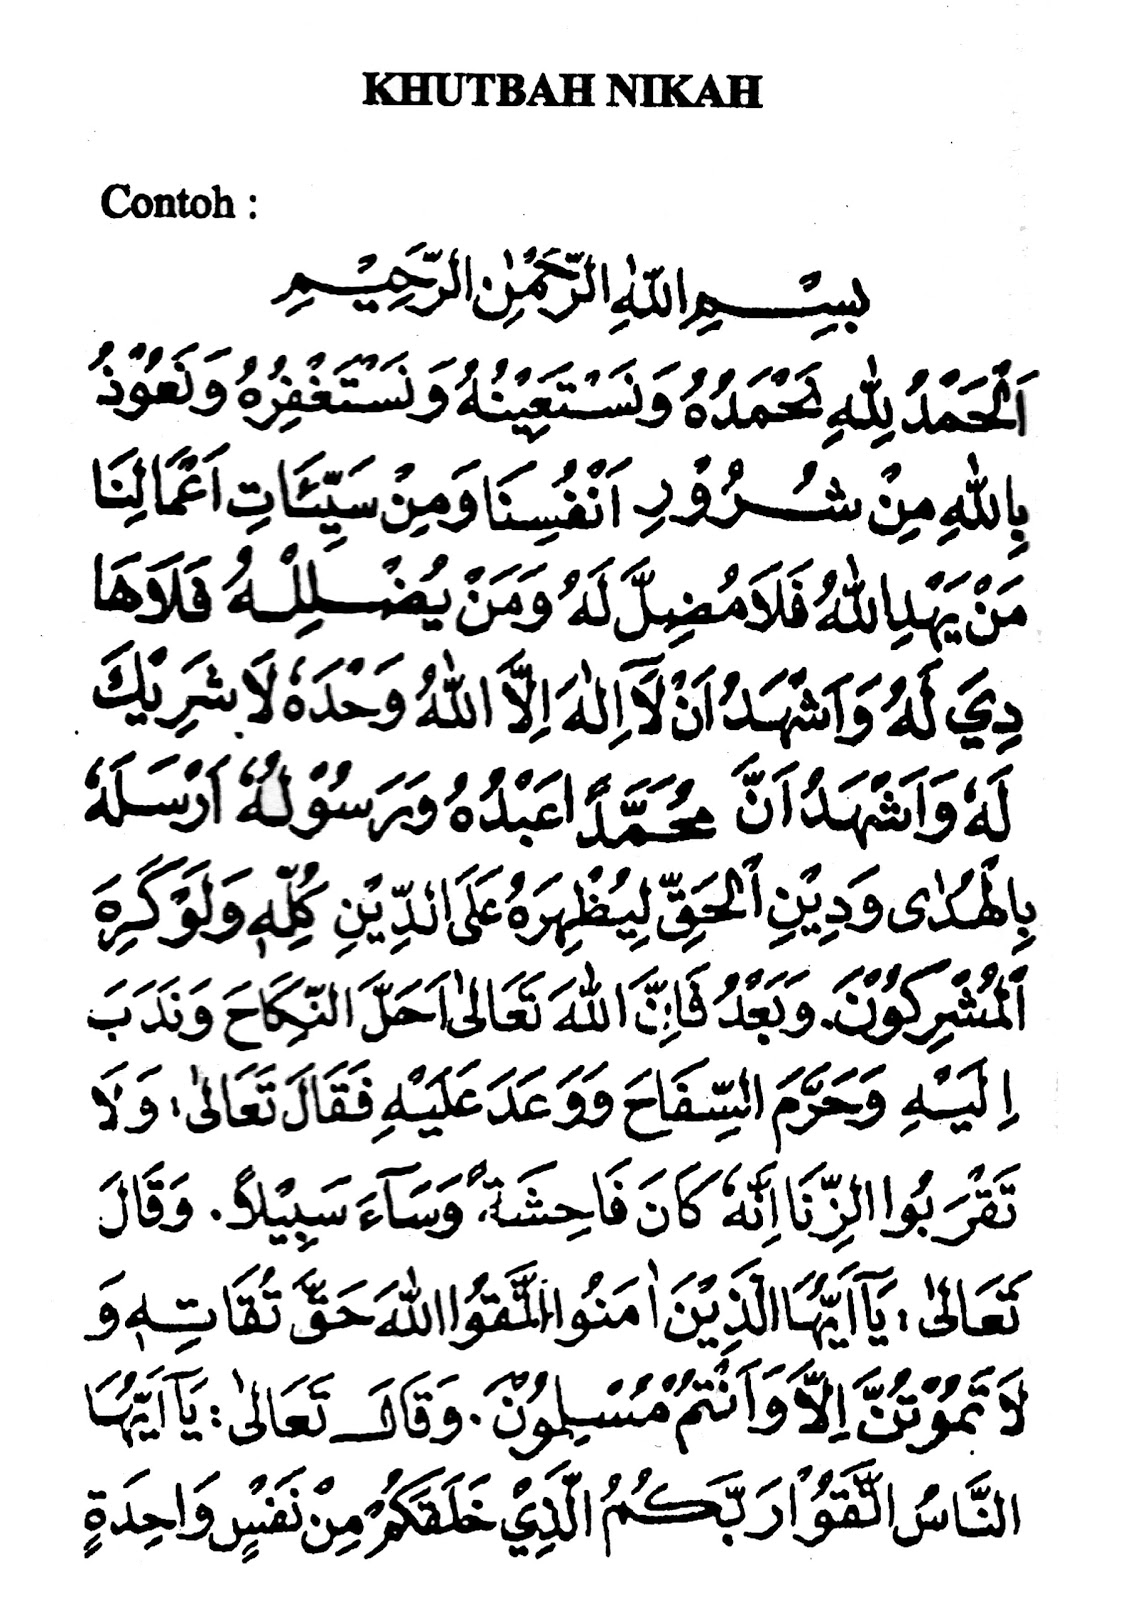 KHUTBAH NIKAH
Contoh :
بِسْمِ اللّٰهِ الرَّحْمٰنِ الرَّحِيْمِ
اَلْحَمْدُ لِلّٰهِ نَحْمَدُهُ وَنَسْتَعِيْنُهُ وَنَسْتَغْفِرُهُ وَنَعُوْذُ
بِاللّٰهِ مِنْ شُرُوْرِ اَنْفُسِنَا وَمِنْ سَيِّئَاتِ اَعْمَالِنَا
مَنْ يَهْدِ اللّٰهُ فَلَا مُضِلَّ لَهُ وَمَنْ يُضْلِلْهُ فَلَاهَا
دِيَ لَهُ وَاَشْهَدُ اَنْ لَآ اِلٰهَ اِلَّا اللّٰهُ وَحْدَهُ لَا شَرِيْكَ
لَهُ وَاَشْهَدُ اَنَّ مُحَمَّدًا عَبْدُهُ وَرَسُوْلُهُ اَرْسَلَهُ
بِالْهُدٰى وَدِيْنِ الْحَقِّ لِيُظْهِرَهُ عَلَى الدِّيْنِ كُلِّهِ وَلَوْ كَرِهَ
الْمُشْرِكُوْنَ. وَبَعْدُ فَاِنَّ اللّٰهَ تَعَالٰى اَحَلَّ النِّكَاحَ وَنَدَبَ
اِلَيْهِ وَحَرَّمَ السِّفَاحَ وَوَعَدَ عَلَيْهِ فَقَالَ تَعَالٰى: وَلَا
تَقْرَبُوا الزِّنَا اِنَّهُ كَانَ فَاحِشَةً، وَسَآءَ سَبِيْلًا. وَقَالَ
تَعَالٰى: يَآ اَيُّهَا الَّذِيْنَ اٰمَنُوا اتَّقُوا اللّٰهَ حَقَّ تُقَاتِهِ وَ
لَا تَمُوْتُنَّ اِلَّا وَاَنْتُمْ مُسْلِمُوْنَ. وَقَالَ تَعَالٰى: يَآ اَيُّهَا
النَّاسُ اتَّقُوْا رَبَّكُمُ الَّذِيْ خَلَقَكُمْ مِنْ نَفْسٍ وَاحِدَةٍ